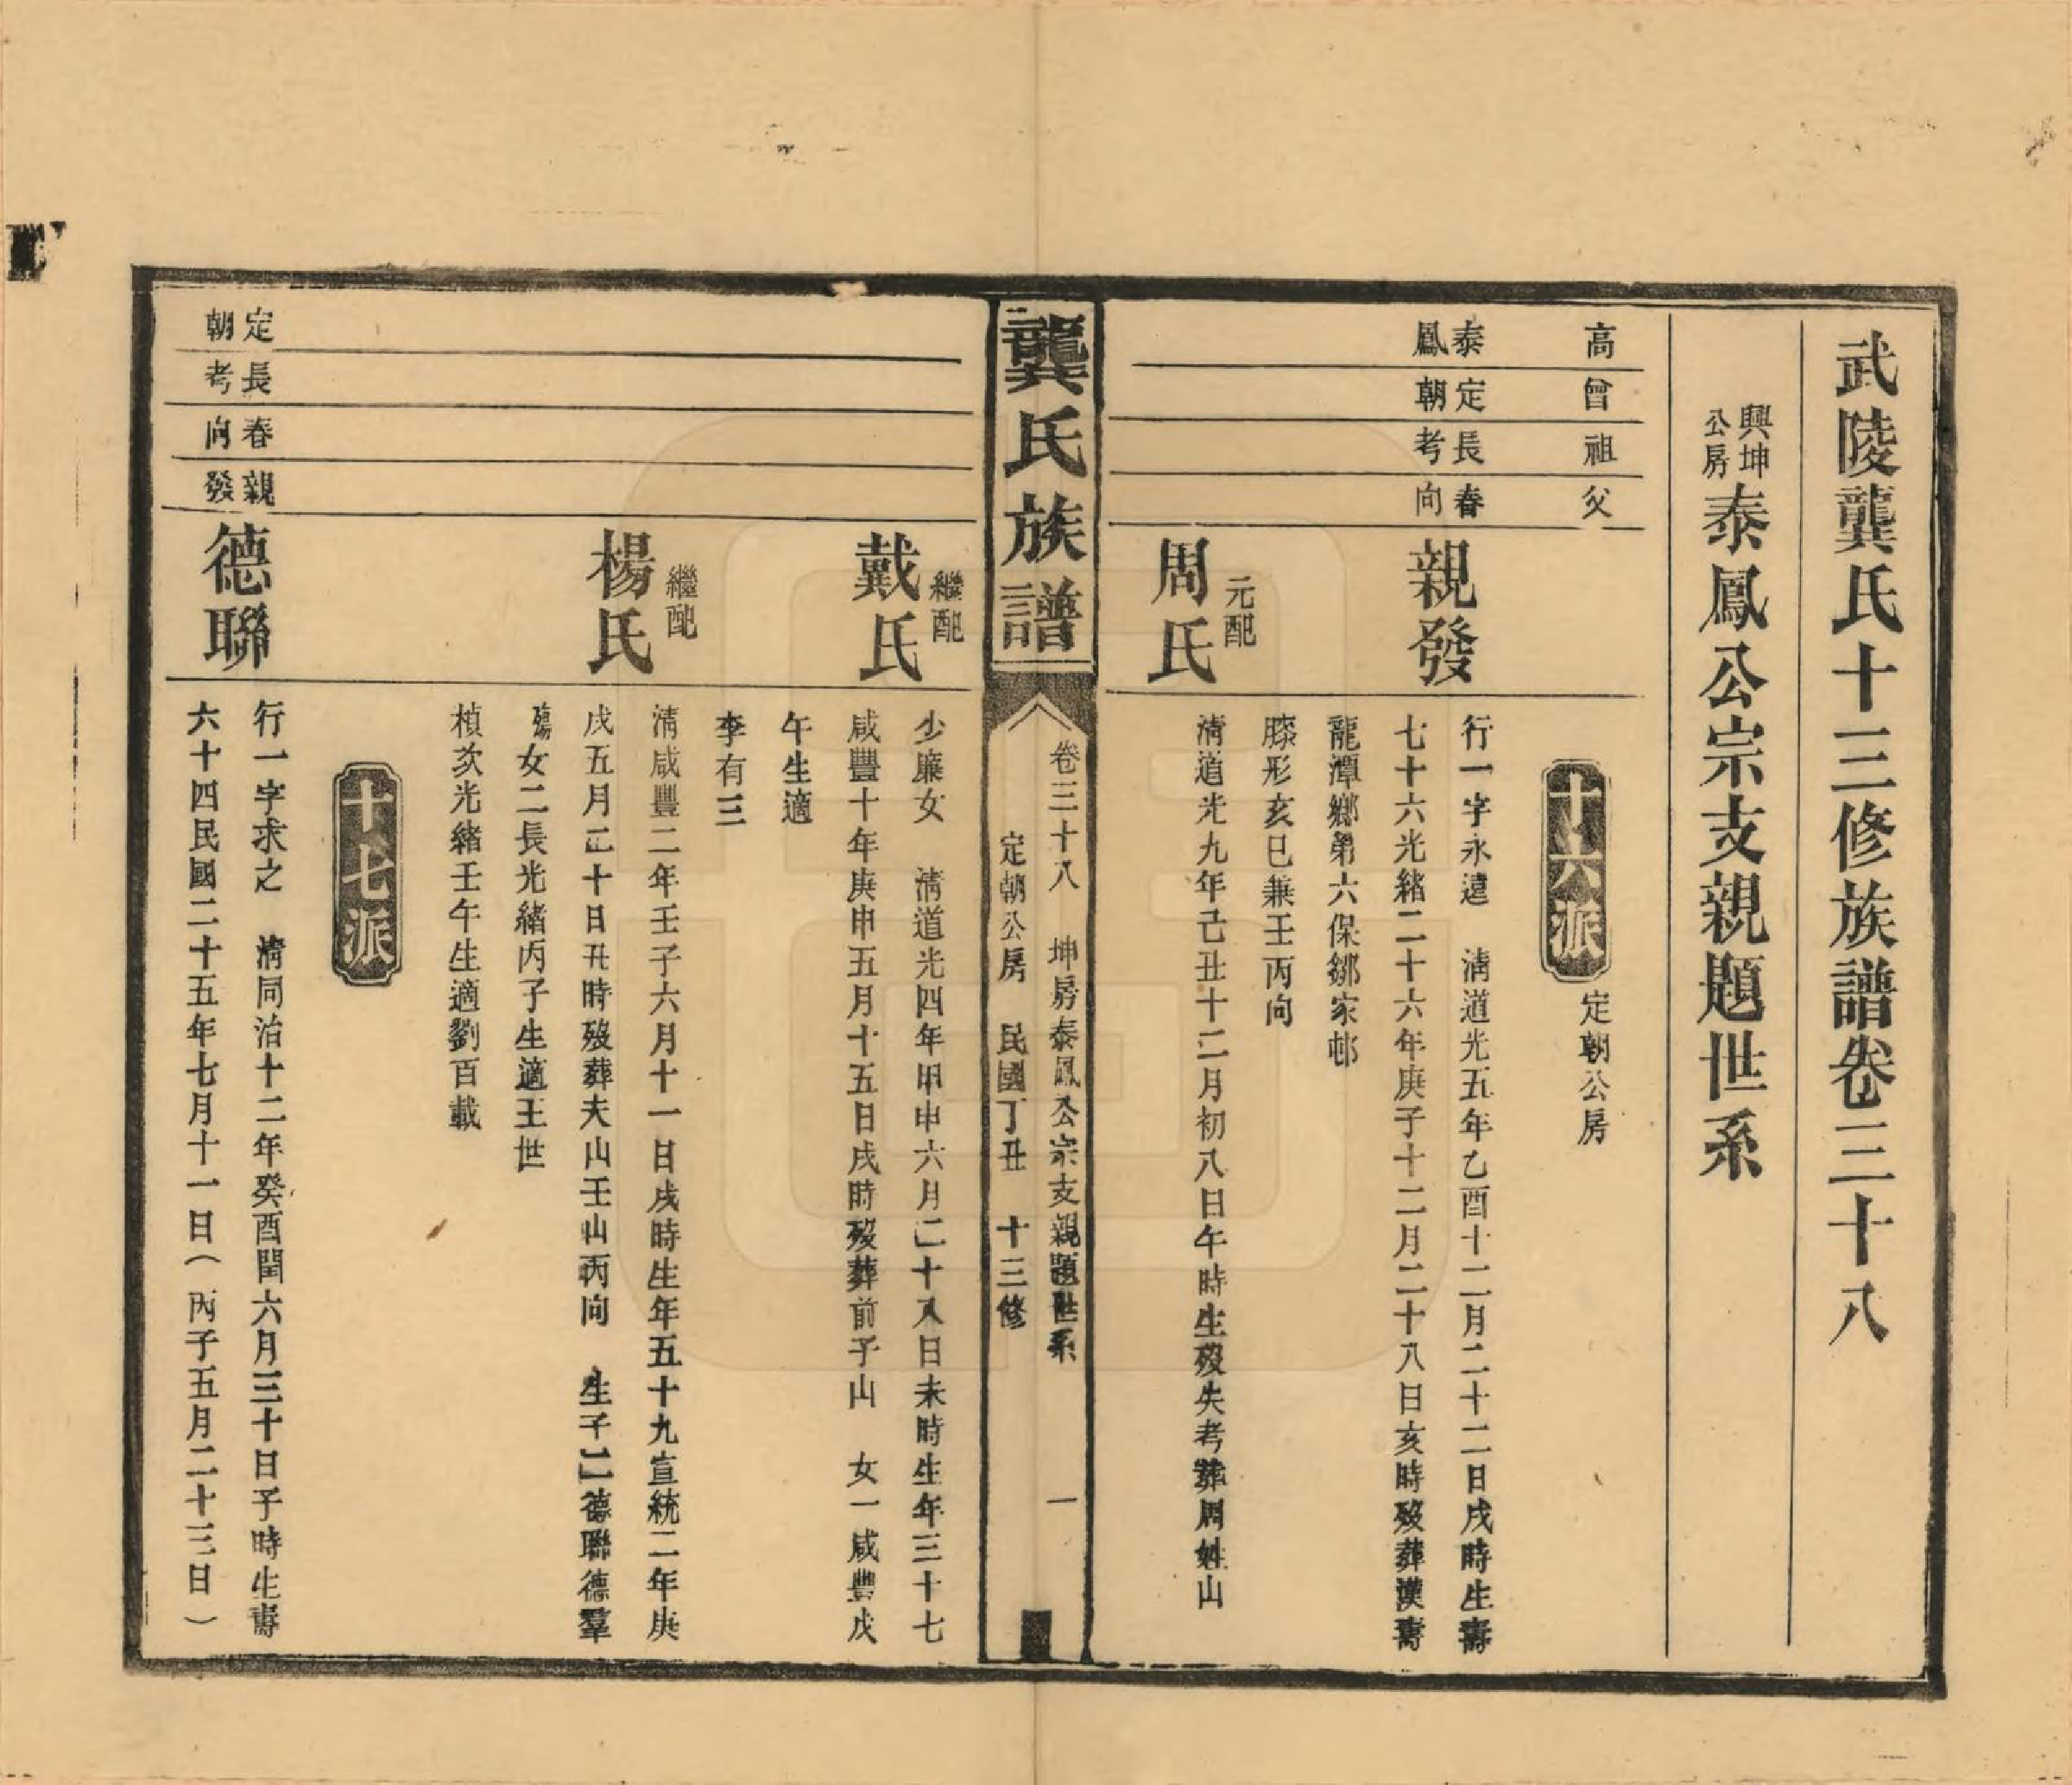 武陵龔氏十三修族譜卷三十八
興坤公房泰鳳公宗支親題世系
高
曾
祖
父
十六派 定朝公房
泰鳳
定朝
長考
春向
親發
行一字永遠 清道光五年乙酉十二月二十二日戌時生壽
七十六光緒二十六年庚子十二月二十八日亥時歿葬漢壽
龍潭鄉弟六保鄒家邨
膝形亥巳兼壬丙向
元配
周氏
清道光九年己丑十二月初八日午時生歿失考葬周姓山
龔氏族譜
卷三十八 坤房泰鳳公宗支親題世系 一
定朝公房 民國丁丑 十三修
繼配
戴氏
少廉女 清道光四年甲申六月二十八日未時生年三十七
咸豐十年庚申五月十五日戌時歿葬前子山 女一咸豐戊
午生適
李有三
繼配
楊氏
清咸豐二年壬子六月十一日戌時生年五十九宣統二年庚
戌五月二十日丑時歿葬夫山壬山丙向 生子二德聯德羣
殤女二長光緒丙子生適王世
楨次光緒壬午生適劉百載
十七派
定朝
長考
春向
親發
德聯
行一字求之 清同治十二年癸酉閏六月三十日子時生壽
六十四民國二十五年七月十一日（丙子五月二十三日）